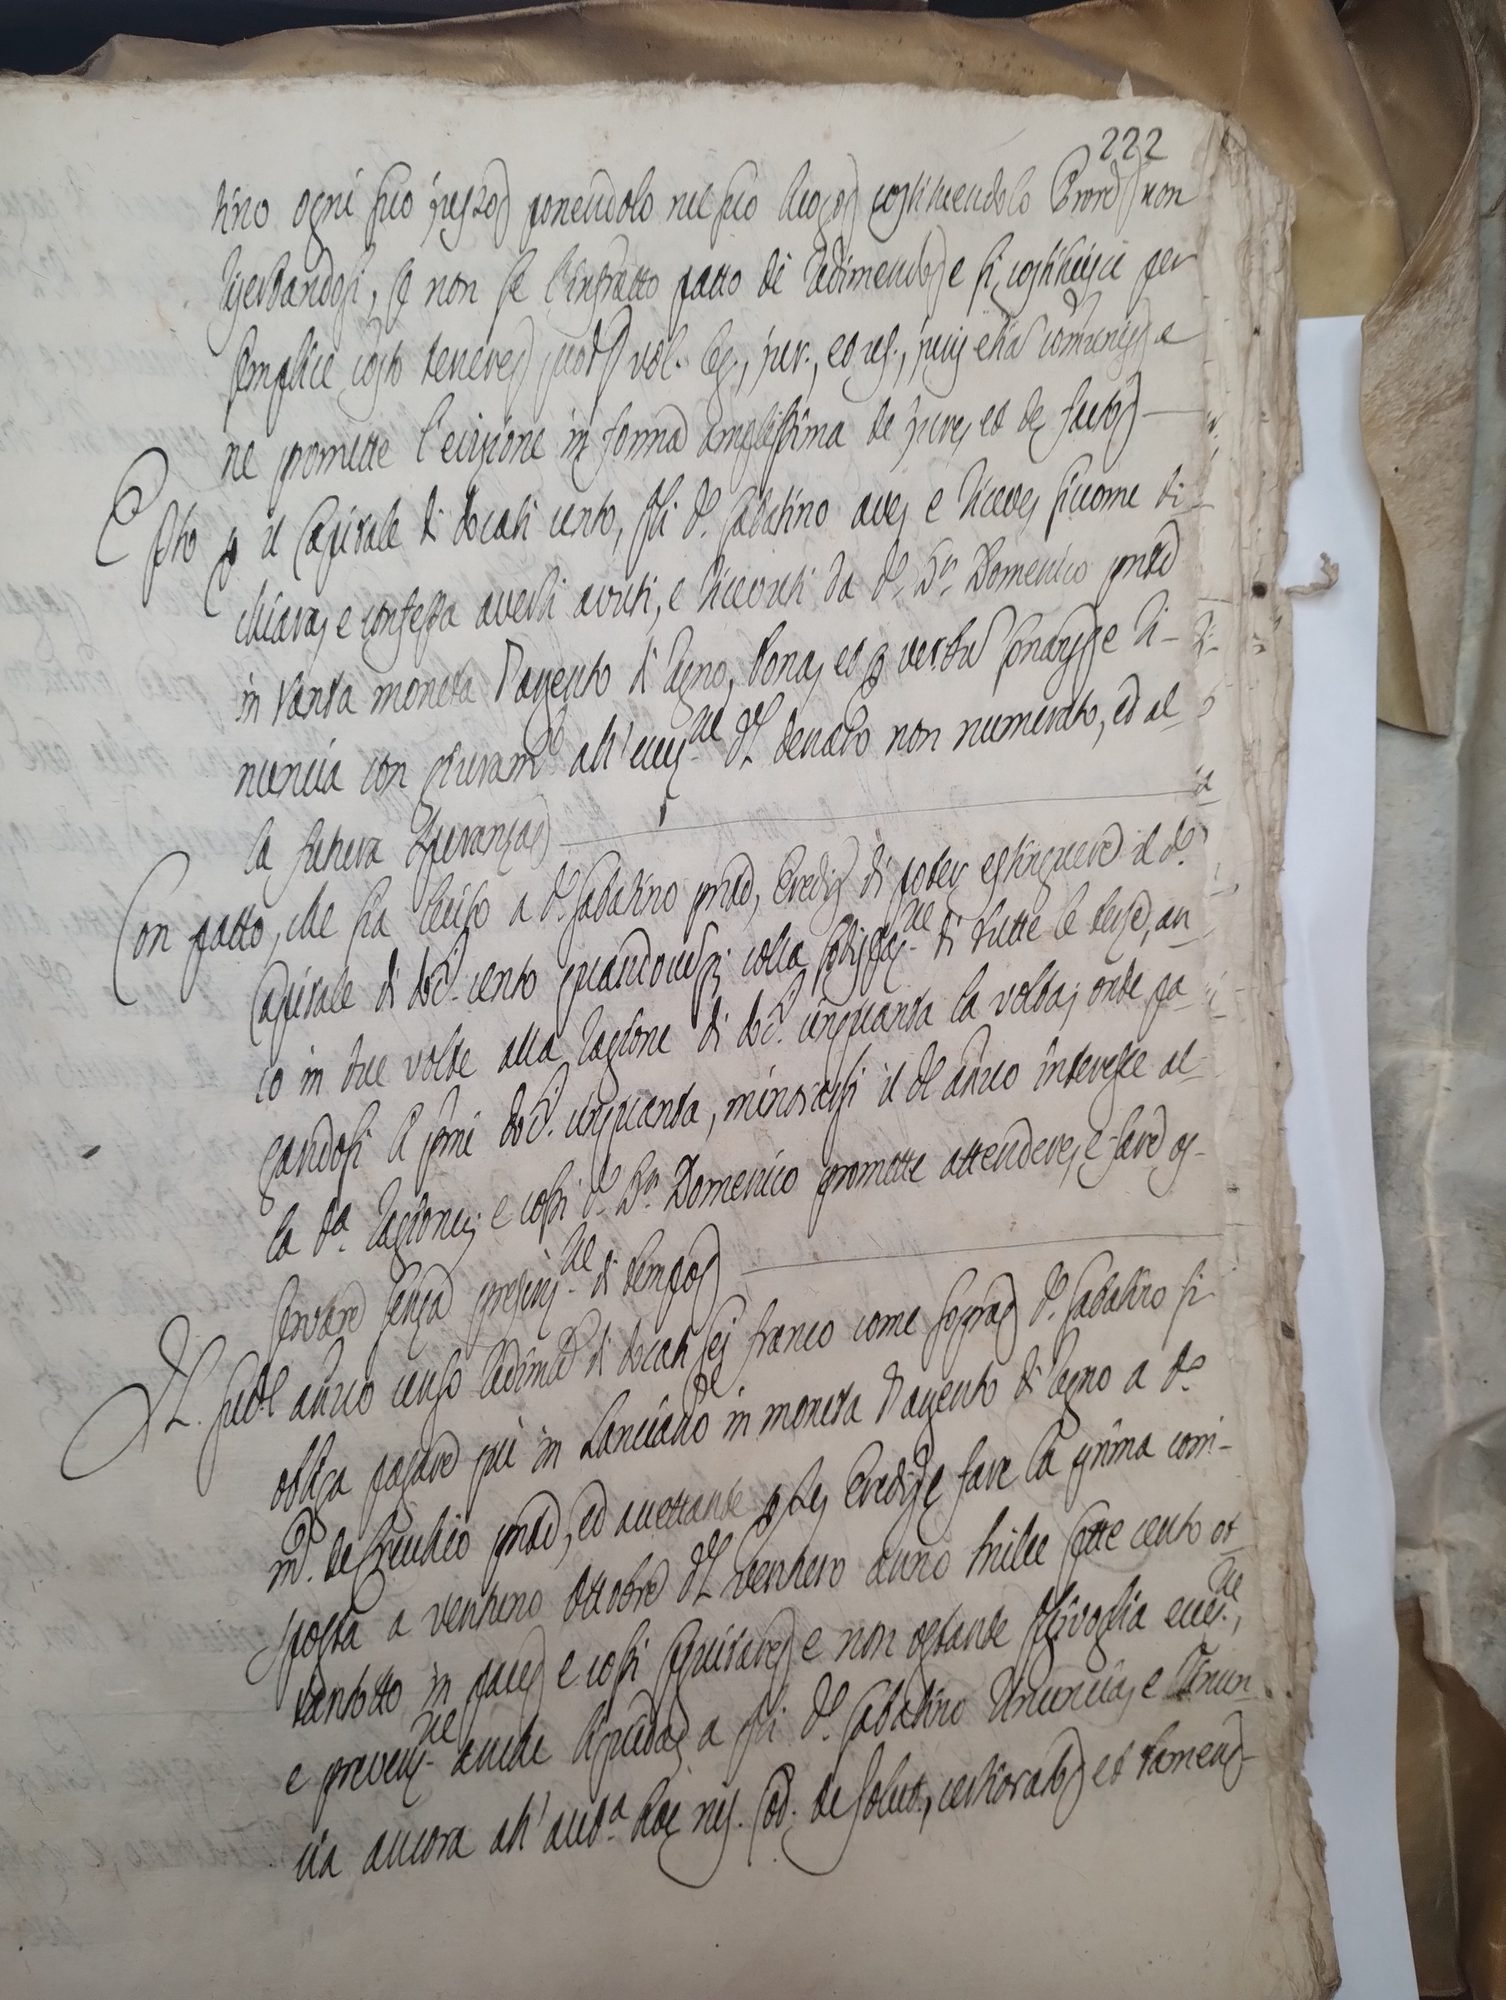 222
tino ogni suo jus, ponendolo nel suo luogo, costituendolo non
riserbandosi, se non se l'infratto patto di redimendo, e si costituisce per
semplice costo tenere vol.
ne promette l'evizione in forma amplissima de jure, et de facto
E q̃sto ꝑ il Capitale di docati cento, q̃li dº. Sabatino ave, e riceve siccome di-
chiara, e confessa averli avuti, e ricevuti da dº. Dʳ. Domenico pntẽ
in tanta moneta d'argento di regno, bona, et e ri-
nuncia con giuramº all'ecceꝫ.ne dl denaro non numerato, ed al-
la futura speranza
Con patto, che sia lecito a dº. Sabatino pntẽ, Eredi di poter estinguere il dº.
Capitale di dot̃. cento quandocuꝫ; colla sodisfaꝫ.ne di tutte le terze, an
co in due volte alla ragione di dot̃. cinquanta la volta; onde pa
gandosi li pmi dot̃. cinquanta, minorassi il dl annuo interesse al-
la dª. ragione; e cossi dº. Dʳ. Domenico promette attendere, e fare os-
servare senza prefiniꝫ.ne di tempo
Il sudl annuo censo redimẽ di docati sei franco come sopra dº. Sabatino si
obliga pagare quì in Lanciano in moneta d'argento di regno a dº.
de Crecchio pntẽ, ed accettante ꝑ se, Eredi, e fare la prima corri-
sposta a ventuno ottobre dl venturo anno mille sette cento ot-
tantotto in pace, e cossi seguitare, e non ostante q̃lsivoglia ecceꝫ.ne,
e prevenꝫ.ne anche liquida, a q̃li dº. Sabatino rinuncia, e rinun-
cia ancora all'autª. hoc nis. Cod. de solut., certiorato, et tamen